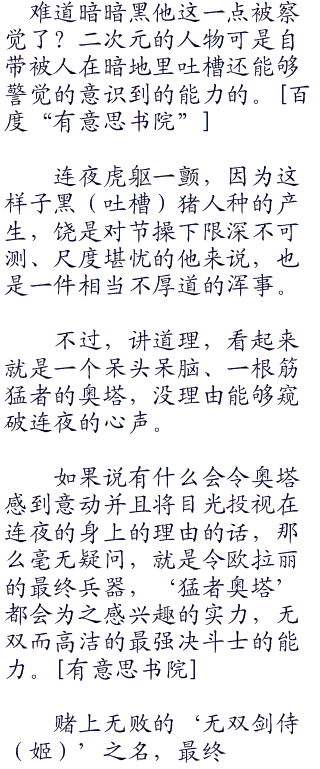 难道暗暗黑他这一点被察
觉了？二次元的人物可是自
带被人在暗地里吐槽还能够
警觉的意识到的能力的。[百
度“有意思书院”]
连夜虎躯一颤，因为这
样子黑（吐槽）猪人种的产
生，饶是对节操下限深不可
测、尺度堪忧的他来说，也
是一件相当不厚道的浑事。
不过，讲道理，看起来
就是一个呆头呆脑、一根筋
猛者的奥塔，没理由能够窥
破连夜的心声。
如果说有什么会令奥塔
感到意动并且将目光投视在
连夜的身上的理由的话，那
么毫无疑问，就是令欧拉丽
的最终兵器，‘猛者奥塔’
都会为之感兴趣的实力，无
双而高洁的最强决斗士的能
力。[有意思书院]
赌上无败的‘无双剑侍
（姬）’之名，最终